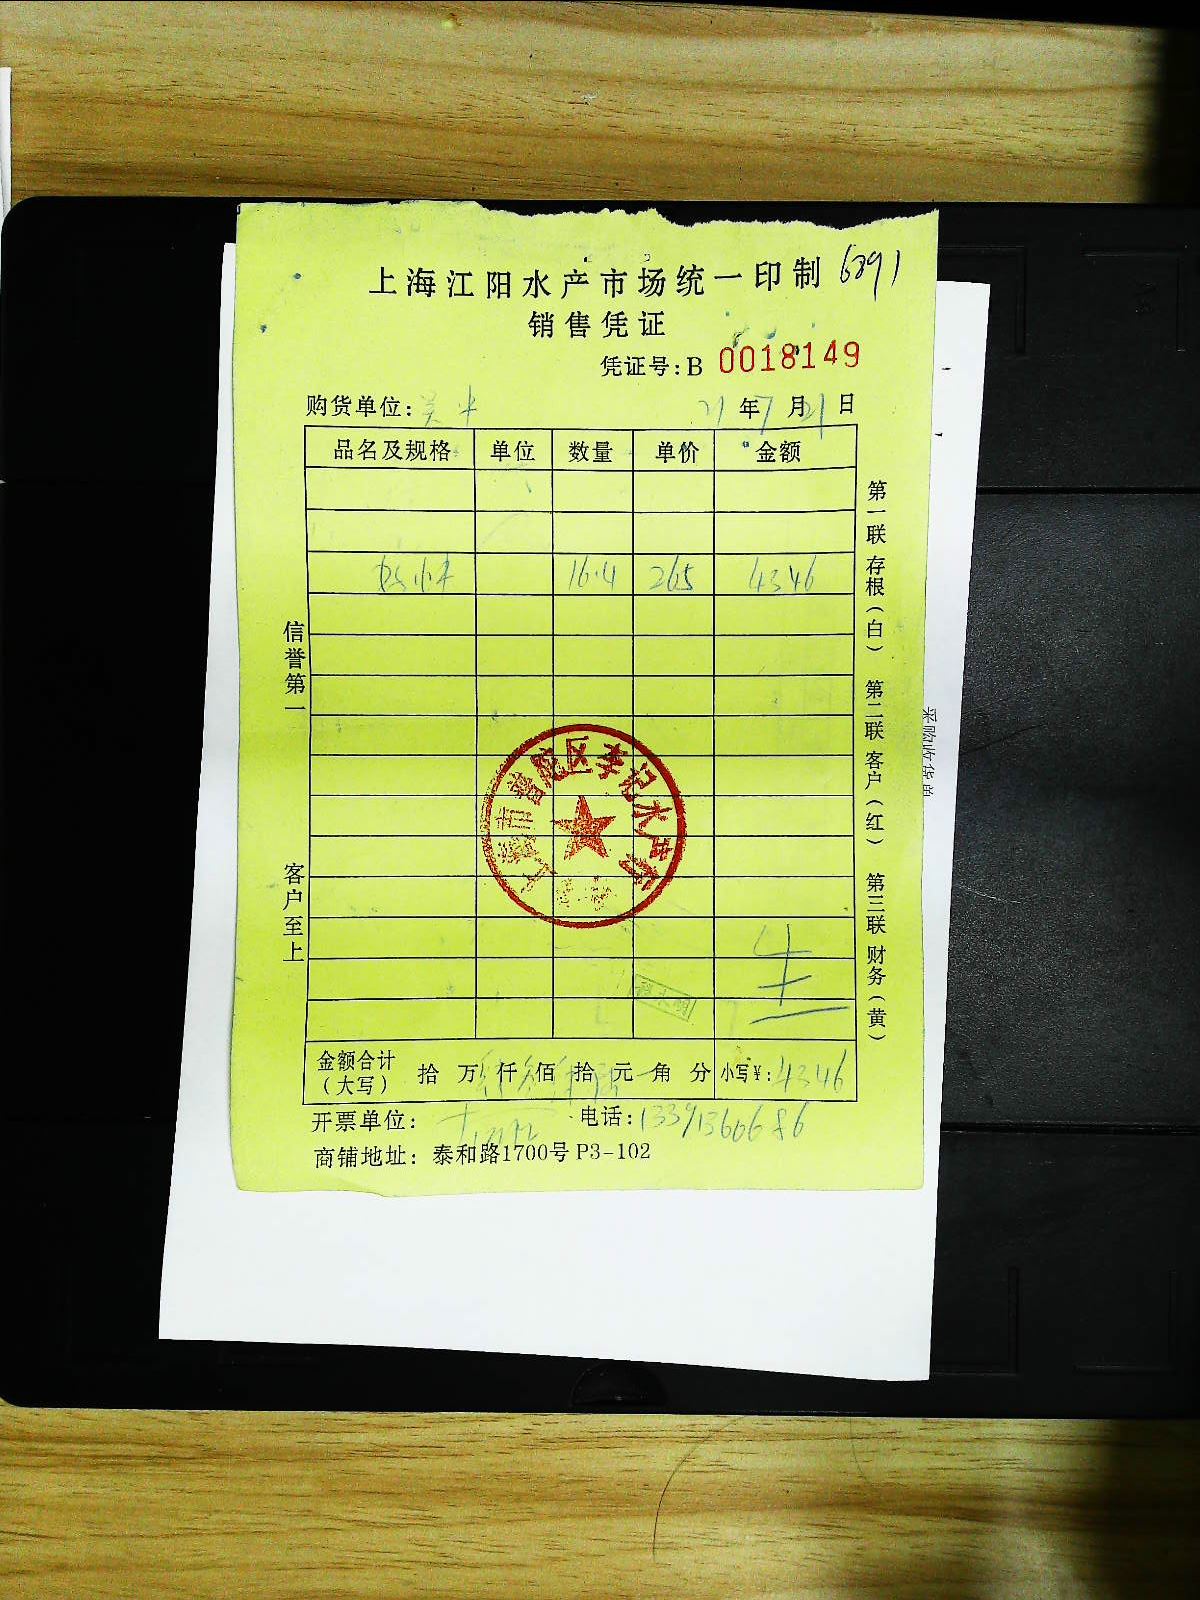 上海江阳水产市场统一印制 6891
销售凭证
凭证号:B 0018149
购货单位: 21年7月21日
品名及规格 单位 数量 单价 金额
16.4 265 4346
信誉第一
客户至上
第一联 存根(白) 第二联 客户(红) 第三联 财务(黄)
上海市普陀区李记水产行
金额合计(大写) 拾 万 仟 佰 拾 元 角 分 小写¥:4346
开票单位: 电话:13391366686
商铺地址: 泰和路1700号 P3-102
采购收货单